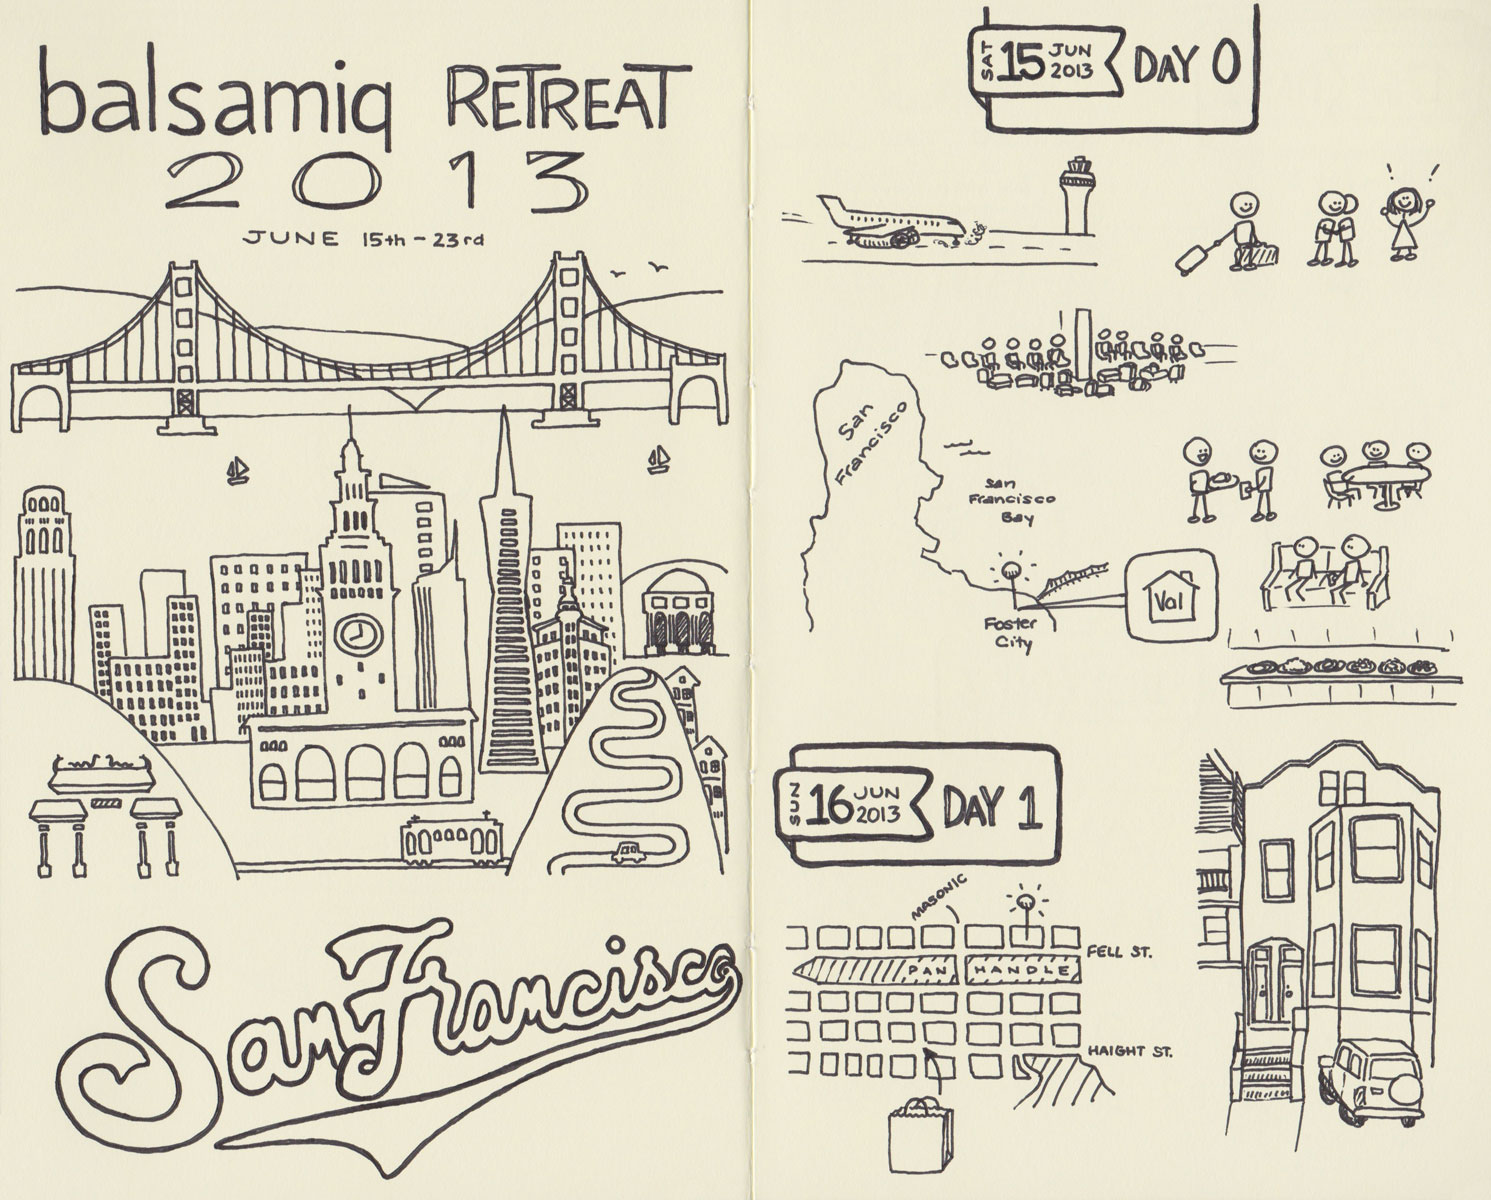 balsamiq RETREAT
2013
JUNE 15th - 23rd
San Francisco
SAT 15 JUN 2013 DAY 0
San Francisco
San Francisco Bay
Foster City
Val
SUN 16 JUN 2013 DAY 1
MASONIC
FELL ST.
PAN HANDLE
HAIGHT ST.